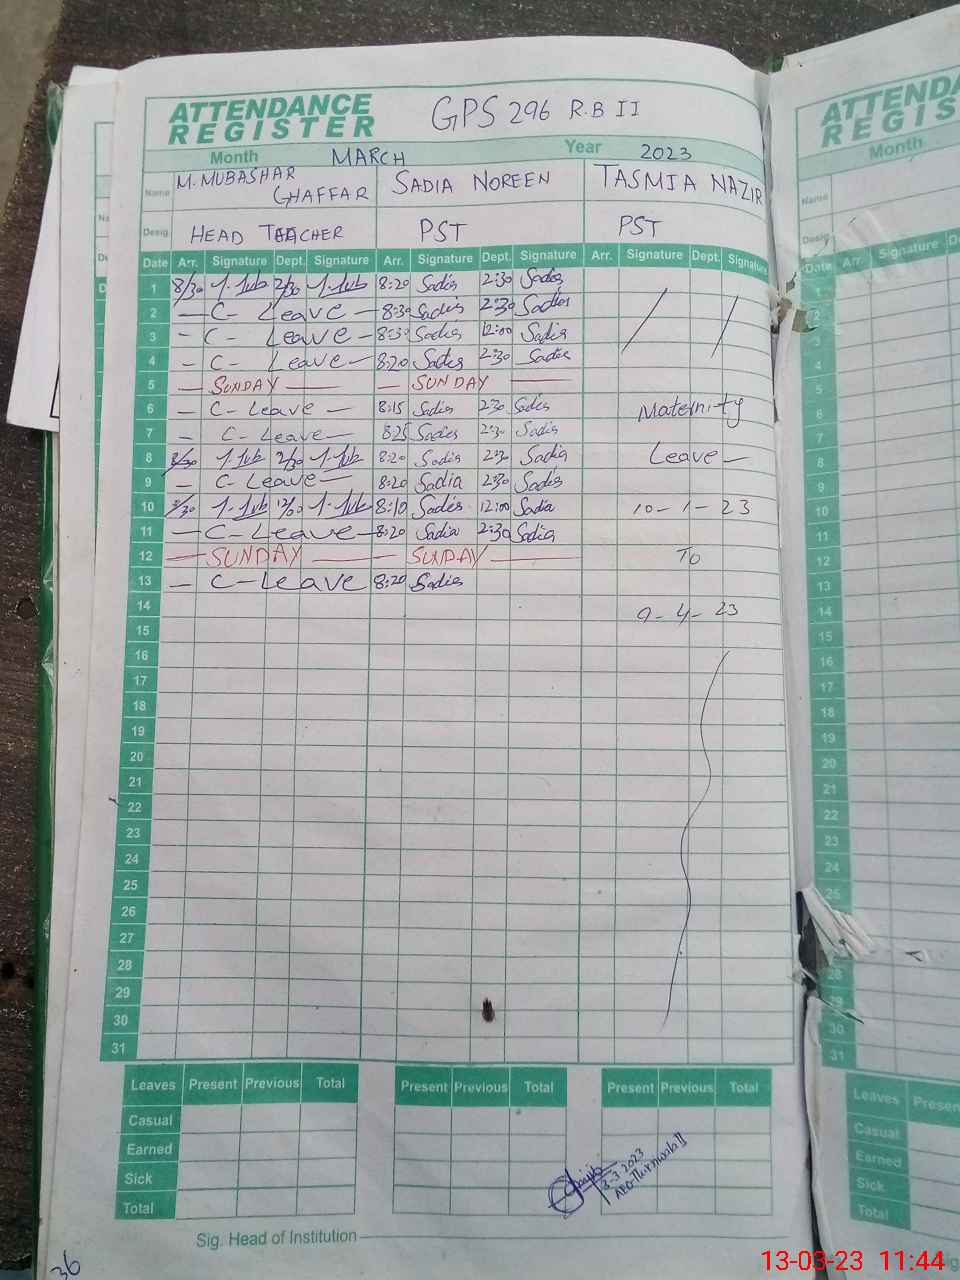 ATTENDANCE
REGISTER
GPS 296 R.B II
Month MARCH Year 2023
Name M. MUBASHAR GHAFFAR SADIA NOREEN TASMIA NAZIR
Desig. HEAD TEACHER PST PST
Date Arr. Signature Dept. Signature Arr. Signature Dept. Signature Arr. Signature Dept. Signature
1 8/30 2/30 8:20 Sadia 2:30 Sadia
2 — C- Leave — 8:30 Sadia 2:30 Sadia
3 - C Leave — 8:30 Sadia 12:00 Sadia
4 - C Leave — 8:20 Sadia 2:30 Sadia
5 — SUNDAY — — SUNDAY —
6 - C-Leave — 8:15 Sadia 2:30 Sadia Maternity
7 - C-Leave — 8:25 Sadia 2:30 Sadia
8 8/30 2/30 8:20 Sadia 2:30 Sadia Leave —
9 - C-Leave — 8:20 Sadia 2:30 Sadia
10 8/30 12/00 8:10 Sadia 12:00 Sadia 10-1-23
11 — C-Leave — 8:20 Sadia 2:30 Sadia
12 — SUNDAY — — SUNDAY — To
13 - C-Leave 8:20 Sadia
14 9-4-23
15
16
17
18
19
20
21
22
23
24
25
26
27
28
29
30
31
Leaves Present Previous Total Present Previous Total Present Previous Total
Casual
Earned
Sick
Total
13-3-2023
Sig. Head of Institution
36
ATTENDA
REGIS
Month
Name
Desig.
Date Arr. Signature De
1
2
3
4
5
6
7
8
9
10
11
12
13
14
15
16
17
18
19
20
21
22
23
24
25
28
29
30
31
Leaves Presen
Casual
Earned
Sick
Total
13-03-23 11:44